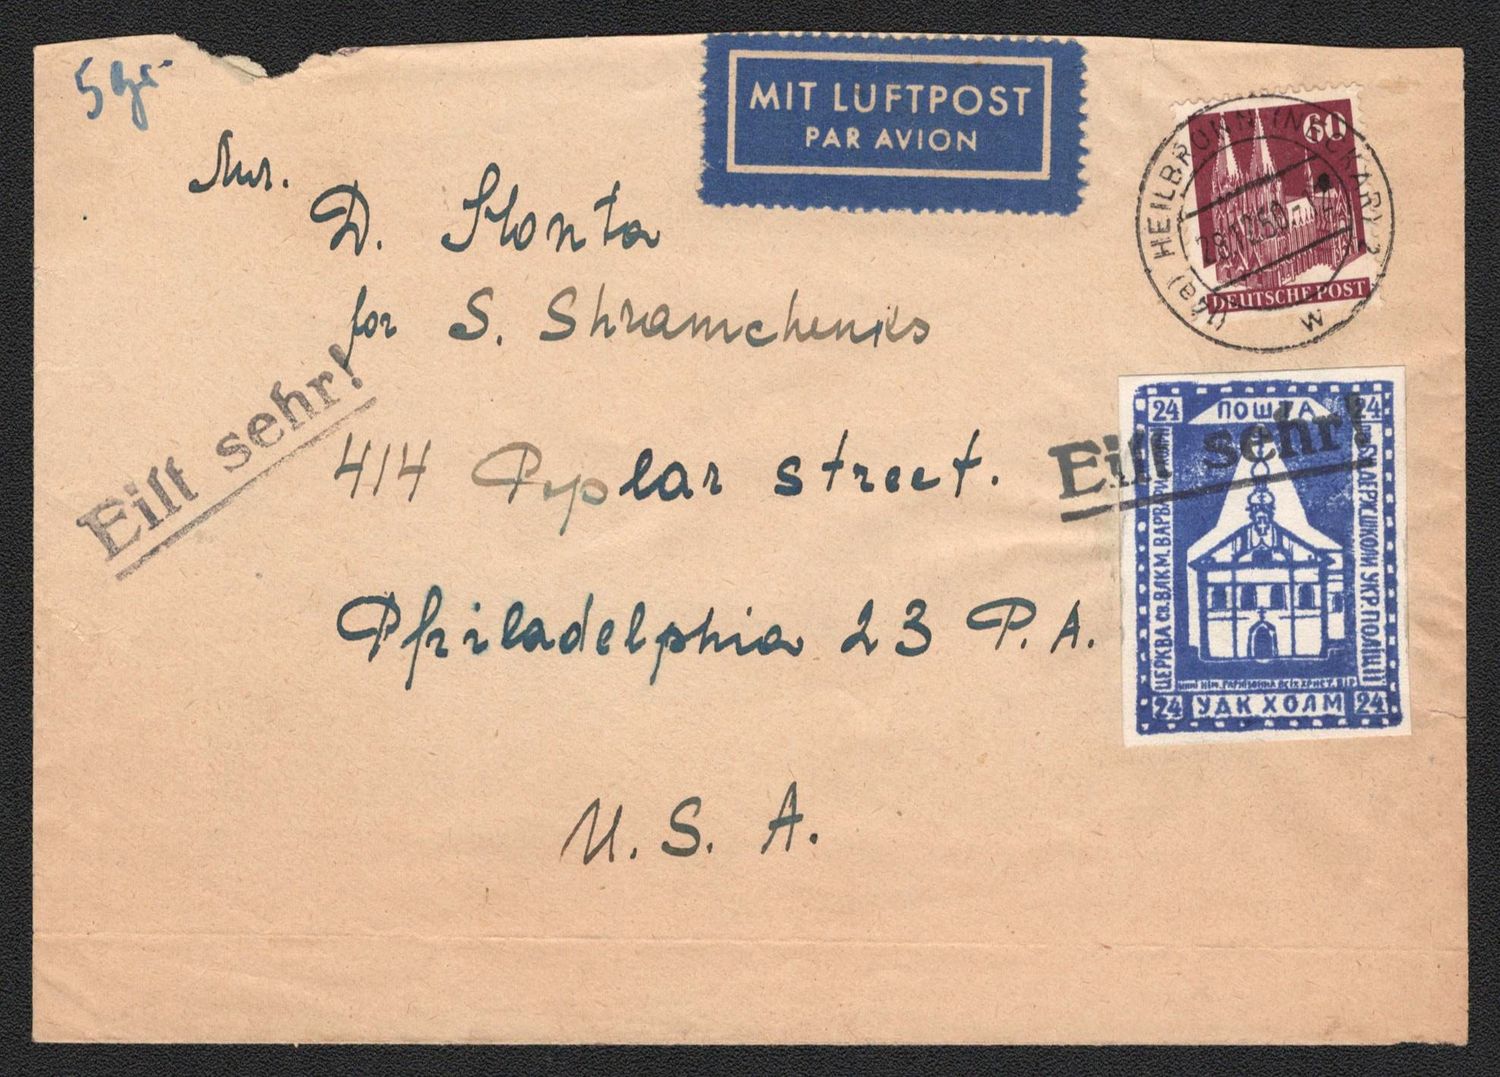 5 gr
MIT LUFTPOST
PAR AVION
60
DEUTSCHE POST
(17a) HEILBRONN (NECKAR) 2
28.12.50
w
Mr.
D. Slonta
for S. Shramchenko
414 Poplar street.
Philadelphia 23 P.A.
U.S.A.
Eilt sehr!
Eilt sehr!
24 ПОШТА 24
ЦЕРКВА св. ВЛКМ. ВАРВАРИ
ДЕРЖ. ШКОЛИ УКР. ПОЛІЦІЇ
24 УДК ХОЛМ 24